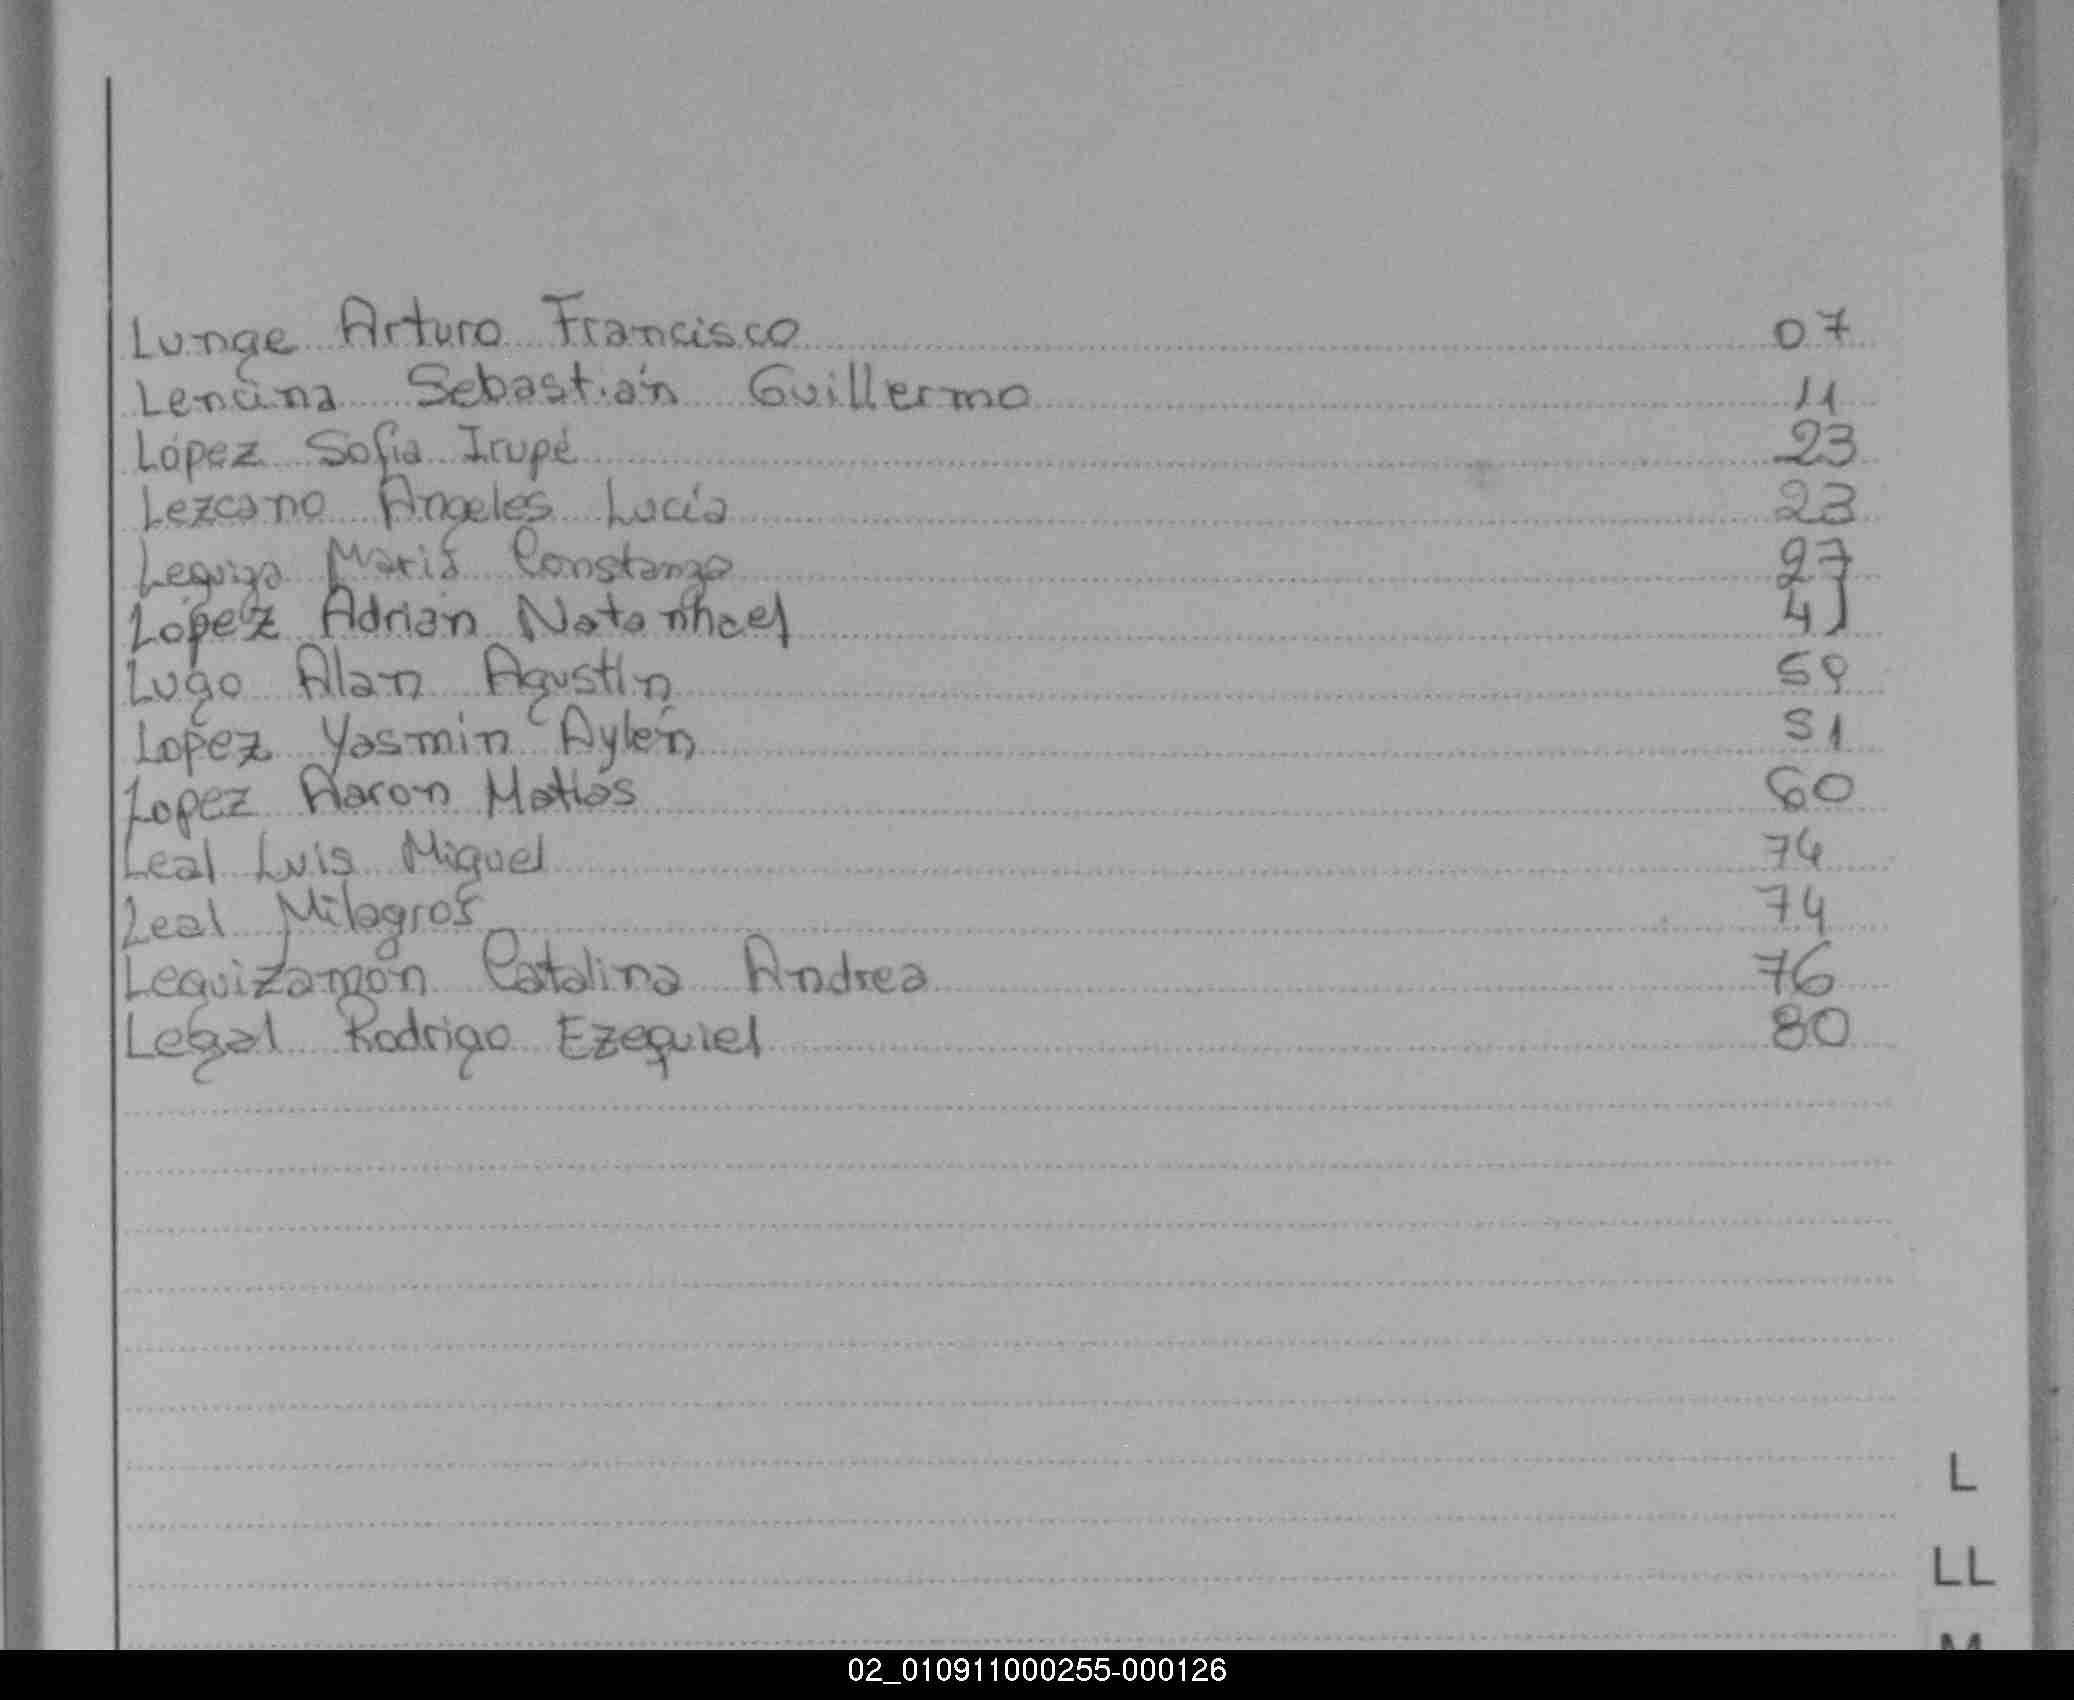 Lunge Arturo Francisco 07
Lencina Sebastián Guillermo 11
López Sofia Irupé 23
Lezcano Angeles Lucía 23
Leguiza María Constanza 27
López Adrián Natanhael 41
Lugo Alan Agustín 50
Lopez Yasmin Aylén 51
Lopez Aaron Matías 60
Leal Luis Miguel 74
Leal Milagros 74
Leguizamón Catalina Andrea 76
Legal Rodrigo Ezequiel 80
L
LL
M
02_010911000255-000126